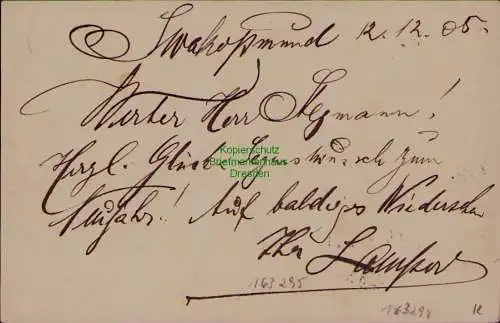 Swakopmund 12.12.05.
Werter Herr Segmann!
Herzl. Glück- Segenswunsch zum
Neujahr! Auf baldiges Wiedersehn
Ihr
Kopierschutz
Briefmarkenhaus
Dresden
163295
163294